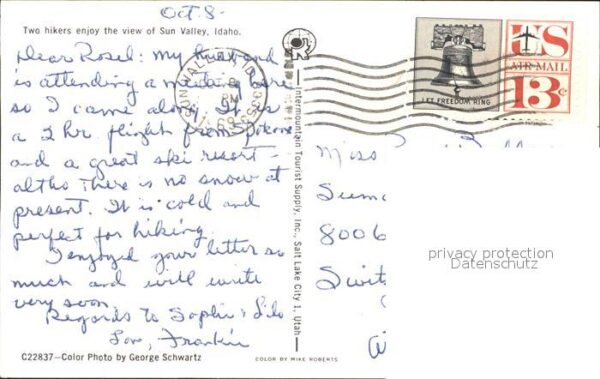 Oct. 8-
Two hikers enjoy the view of Sun Valley, Idaho.
Dear Rosel: my husband
is attending a meeting here
so I came along. It is
a 2 hr. flight from Spokane
and a great ski resort -
altho there is no snow at
present. It is cold and
perfect for hiking.
I enjoyed your letter so
much and will write
very soon.
Regards to Sophie & Lilo
Love, Frankie
C22837—Color Photo by George Schwartz
COLOR BY MIKE ROBERTS
Intermountain Tourist Supply, Inc., Salt Lake City 1, Utah
SUN VALLEY
PM
LET FREEDOM RING
US
AIR MAIL
13c
Miss
8006
Switz
privacy protection
Datenschutz